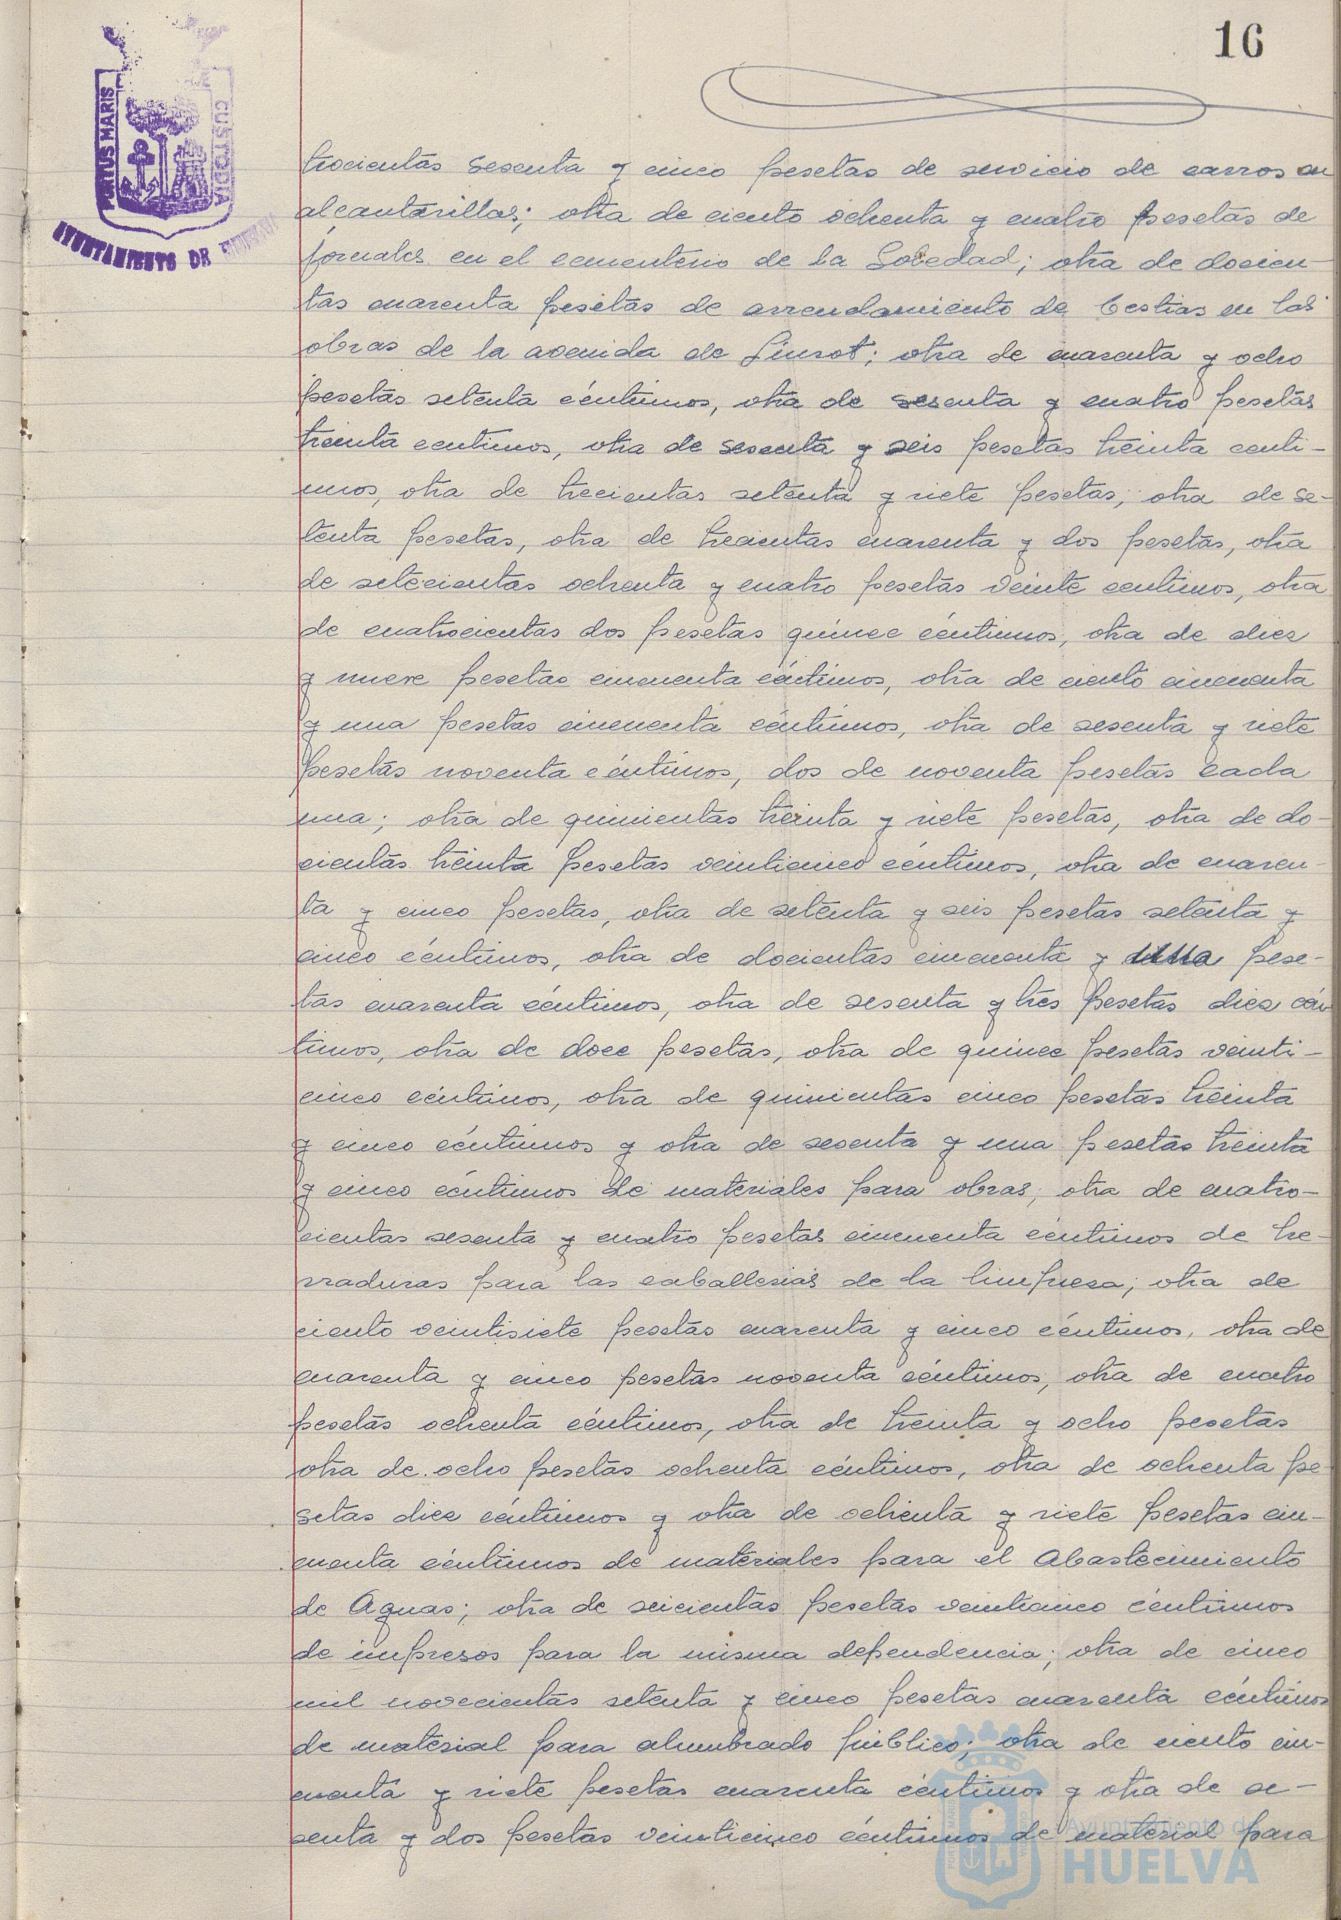 16
PORTUS MARIS
CUSTODIA
AYUNTAMIENTO DE HUELVA
trocientas sesenta y cinco pesetas de servicio de carros en
alcantarillas; otra de ciento ochenta y cuatro pesetas de
jornales en el cementerio de la Soledad; otra de docien-
tas cuarenta pesetas de arrendamiento de bestias en las
obras de la avenida de ; otra de cuarenta y ocho
pesetas setenta céntimos, otra de sesenta y cuatro pesetas
treinta centimos, otra de sesenta y seis pesetas treinta centi-
mos, otra de trecientas setenta y siete pesetas, otra de se-
tenta pesetas, otra de trecientas cuarenta y dos pesetas, otra
de setecientas ochenta y cuatro pesetas veinte centimos, otra
de cuatrocientas dos pesetas quince céntimos, otra de diez
y nueve pesetas cincuenta céntimos, otra de ciento cincuenta
y una pesetas cincuenta céntimos, otra de sesenta y siete
pesetas noventa céntimos, dos de noventa pesetas cada
una; otra de quinientas treinta y siete pesetas, otra de do-
cientas treinta pesetas veinticinco céntimos, otra de cuaren-
ta y cinco pesetas, otra de setenta y seis pesetas setenta y
cinco céntimos, otra de docientas cincuenta y una pese-
tas cuarenta céntimos, otra de sesenta y tres pesetas diez cén
timos, otra de doce pesetas, otra de quince pesetas veinti-
cinco céntimos, otra de quinientas cinco pesetas treinta
y cinco céntimos y otra de sesenta y una pesetas treinta
y cinco céntimos de materiales para obras; otra de cuatro-
cientas sesenta y cuatro pesetas cincuenta céntimos de he-
rraduras para las caballerias de la limpieza; otra de
ciento veintisiete pesetas cuarenta y cinco céntimos, otra de
cuarenta y cinco pesetas noventa céntimos, otra de cuatro
pesetas ochenta céntimos, otra de treinta y ocho pesetas
otra de ocho pesetas ochenta céntimos, otra de ochenta pe
setas diez céntimos y otra de ochenta y siete pesetas cin-
cuenta céntimos de materiales para el Abastecimiento
de Aguas; otra de seicientas pesetas veinticinco céntimos
de impresos para la misma dependencia; otra de cinco
mil novecientas setenta y cinco pesetas cuarenta céntimos
de material para alumbrado público; otra de ciento cin-
cuenta y siete pesetas cuarenta céntimos y otra de se-
senta y dos pesetas veinticinco céntimos de material para
Ayuntamiento de
HUELVA